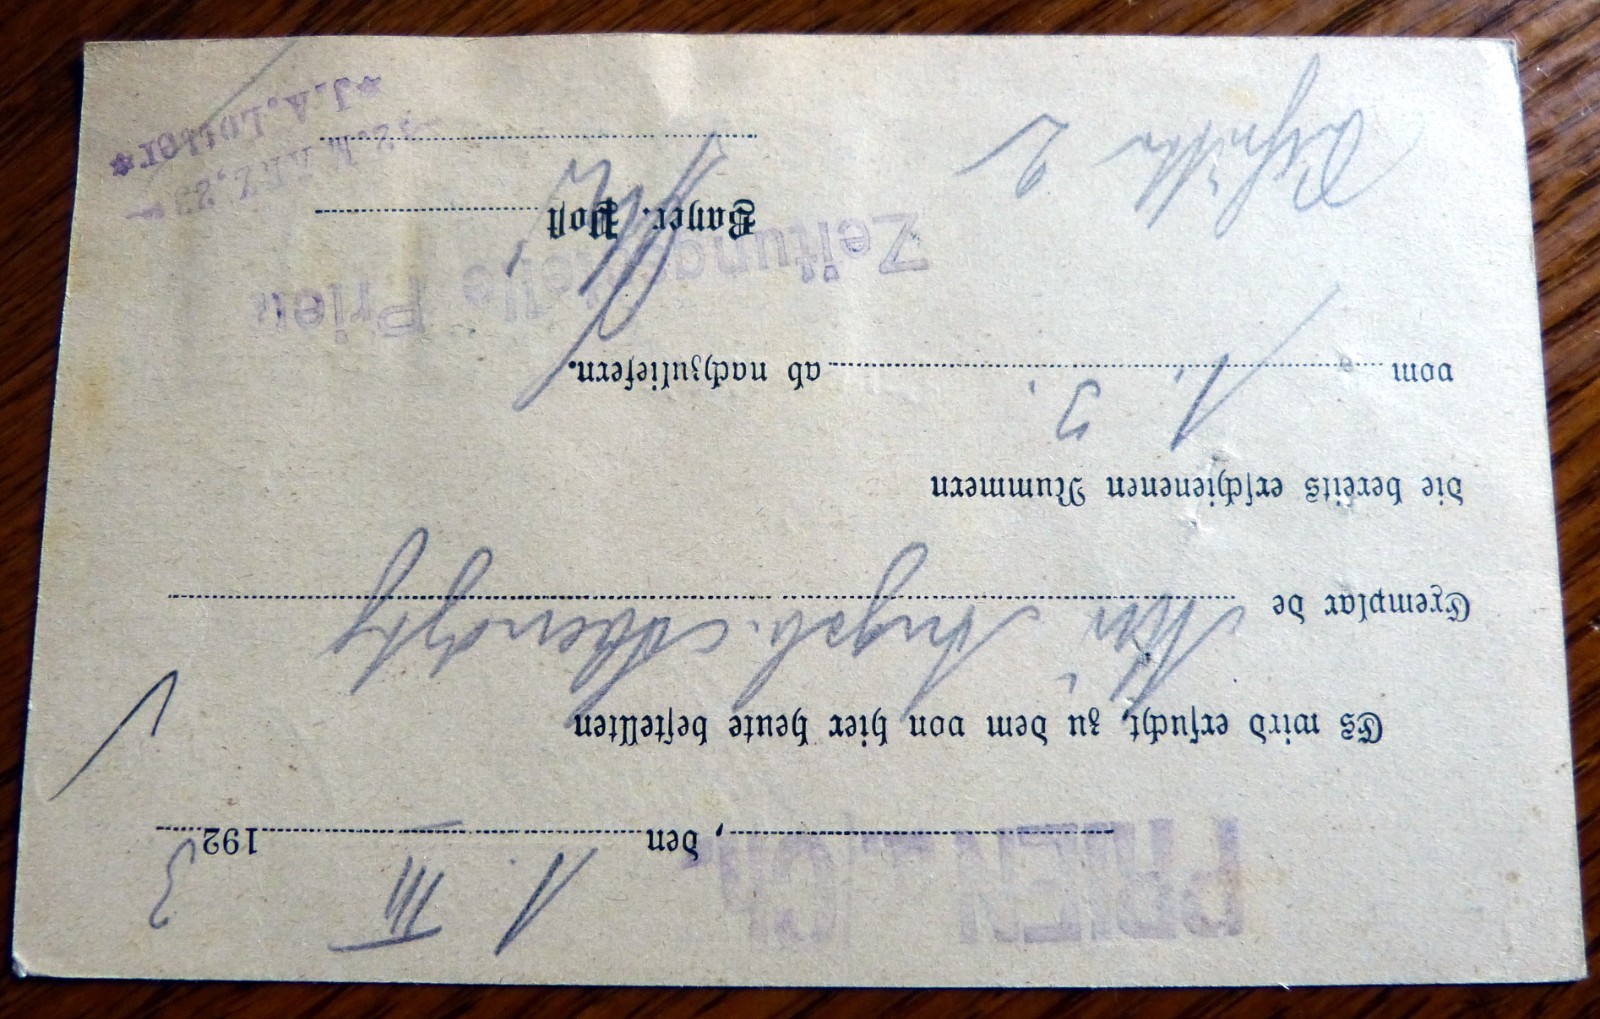 PRIEN , den 1. III 1923
Es wird ersucht, zu dem von hier heute bestellten
Exemplar de Augsb. Abendztg
die bereits erschienenen Nummern
vom 1. 3. ab nachzuliefern.
Zeitungsstelle Prien
Bayer. Post
2
-2. MÄRZ. 23 -
*J. A. Lotter*